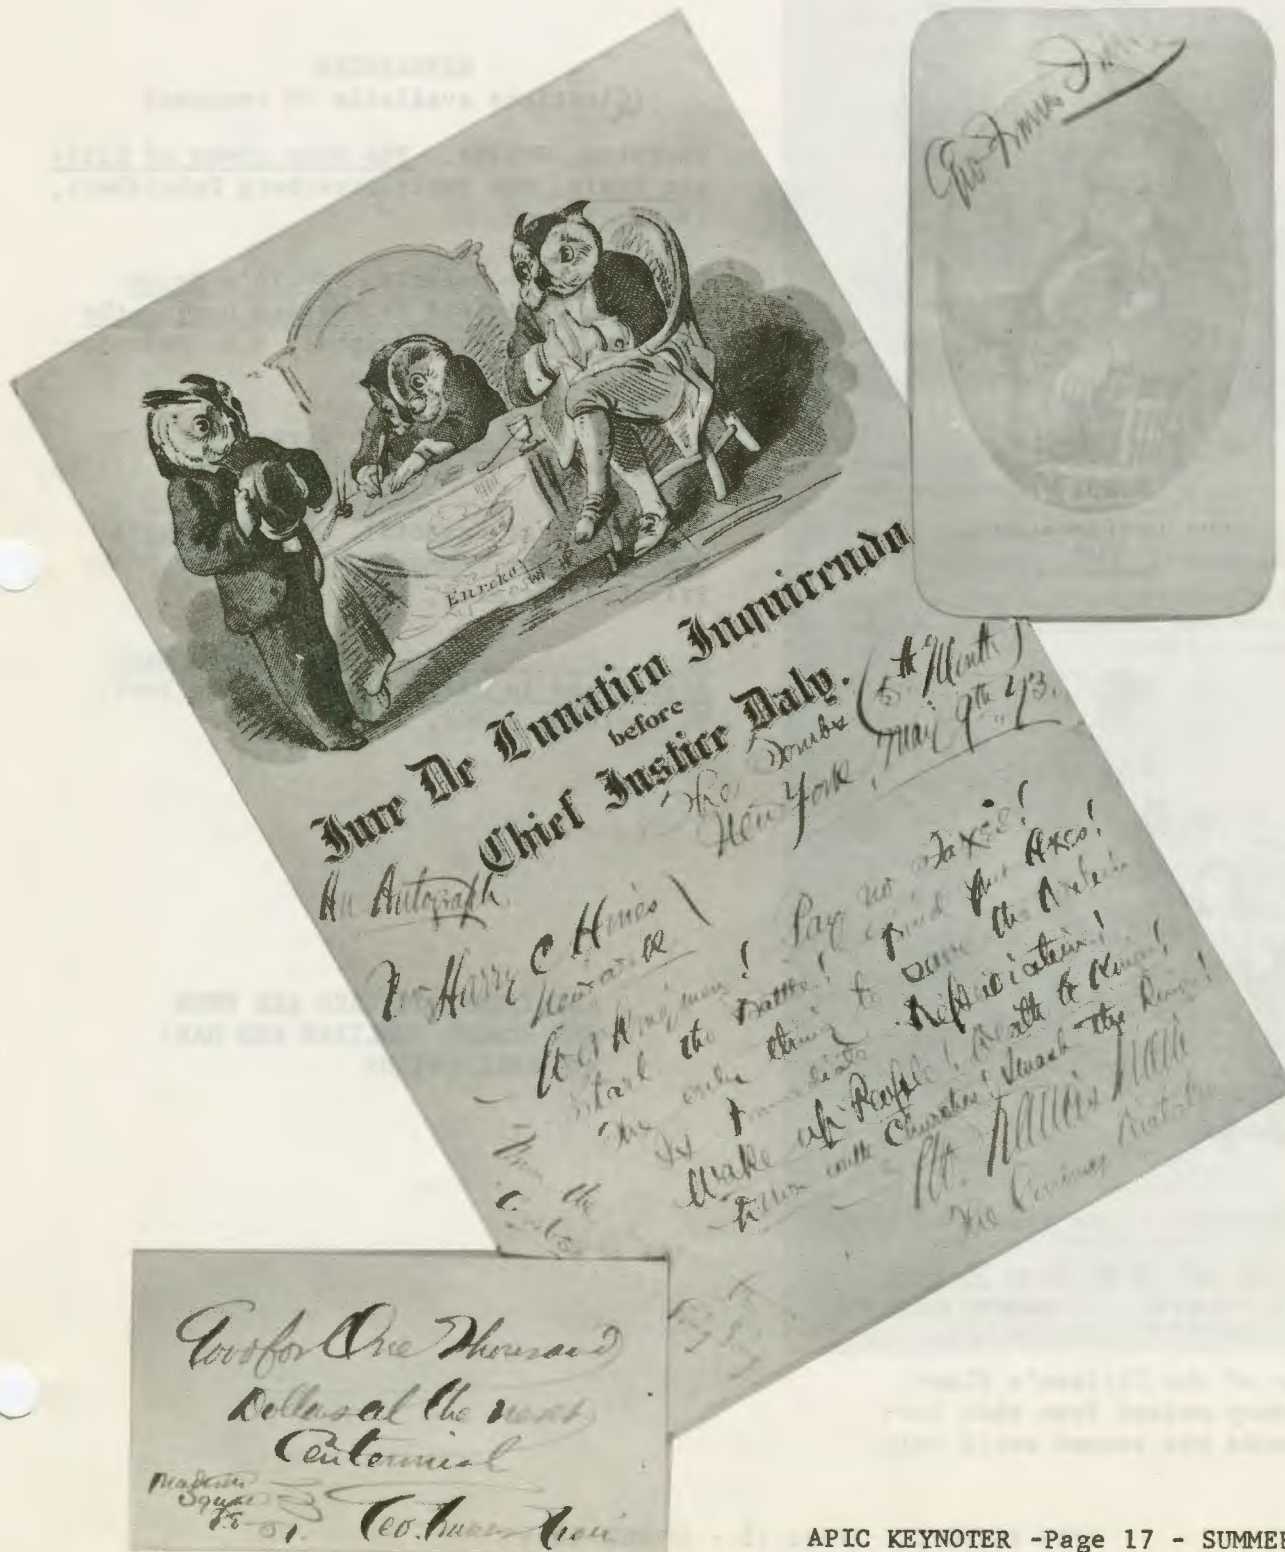 Geo Francis Train
Eureka!
Jure De Lunatico Inquirendo
before
Chief Justice Daly.
The Tombs (5th Month)
New York, May 9th 73.
An Autograph
Mr Harry C Hines
Newark
Workingmen! Pay no Taxes!
Start the Battle! Grind the Axes!
The only thing to save the Nation
Is Immediate Repudiation!
Wake up People! Death to Kings!
Down with Churches! Smash the Rings!
Geo. Francis Train
The Coming Dictator
From the
Good for One Thousand
Dollars at the next
Centennial
Madison
Square
Geo. Francis Train
APIC KEYNOTER -Page 17 - SUMMER